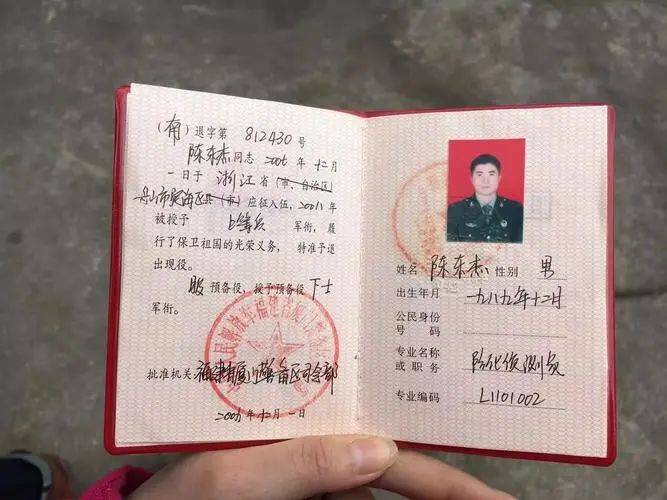 (南)退字第 812430 号
陈东杰同志 2006 年 十二月
一日于 浙江 省(市、自治区)
舟山市定海区县(市)应征入伍,2008年
被授予 上等兵 军衔,履
行了保卫祖国的光荣义务,特准予退
出现役。
服预备役,授予预备役 下士
军衔。
批准机关:福建省厦门警备区司令部
2008年十二月一日
姓名 陈东杰 性别 男
出生年月 一九八九年十二月
公民身份
号码
专业名称
或职务 防化侦测员
专业编码 L1101002